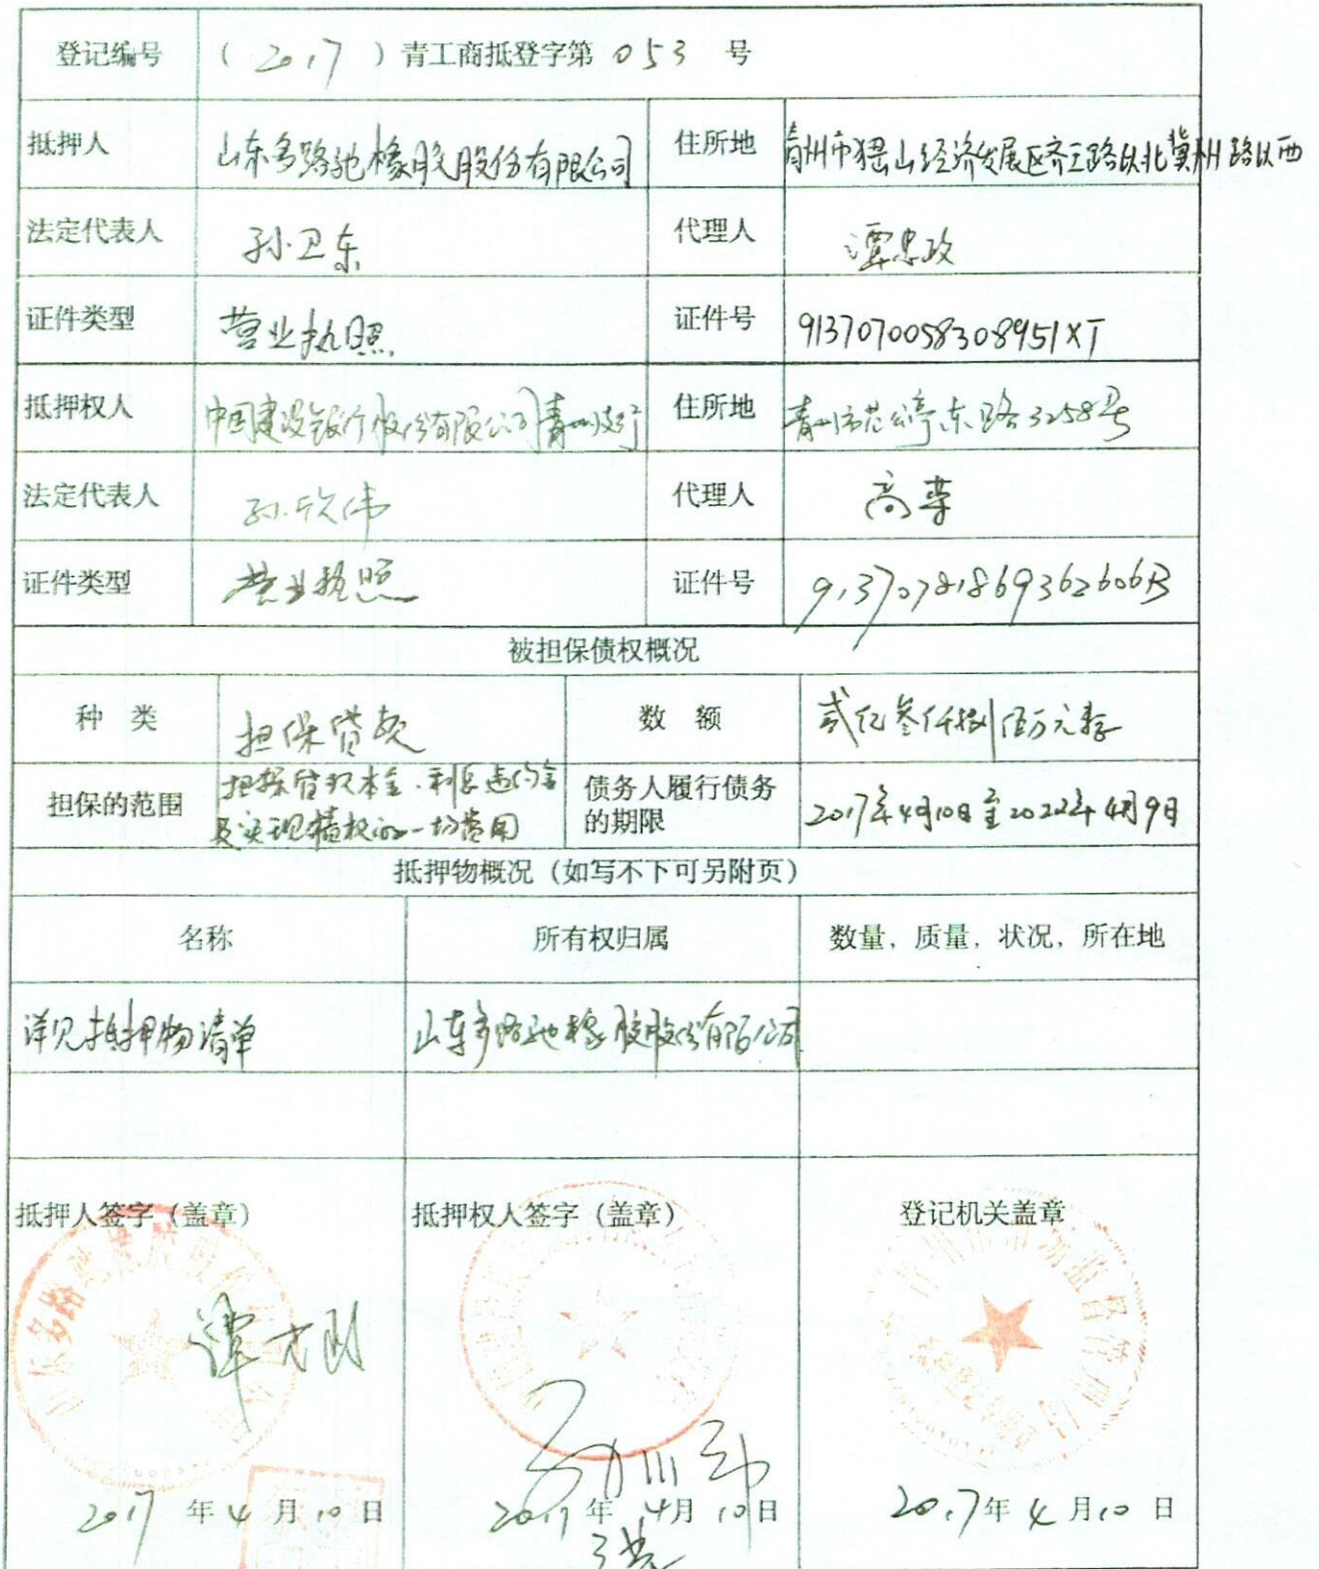 登记编号 （2017）青工商抵登字第 053 号
抵押人 山东多路驰橡胶股份有限公司 住所地 青州市猕山经济发展区齐王路以北冀州路以西
法定代表人 孙卫东 代理人 谭忠政
证件类型 营业执照 证件号 9137070058308951XT
抵押权人 中国建设银行股份有限公司青州支行 住所地 青州市范公亭东路3258号
法定代表人 孙欣伟 代理人 高
证件类型 营业执照 证件号 91370781869362606B
被担保债权概况
种 类 担保贷款 数 额 贰亿叁仟捌佰万元整
担保的范围 担保贷款本金、利息违约金
及实现债权的一切费用
债务人履行债务
的期限
2017年4月10日至2022年4月9日
抵押物概况（如写不下可另附页）
名称 所有权归属 数量，质量，状况，所在地
详见抵押物清单 山东多路驰橡胶股份有限公司
抵押人签字（盖章） 抵押权人签字（盖章） 登记机关盖章
2017 年 4 月 10 日 2017 年 4 月 10 日 2017 年 4 月 10 日